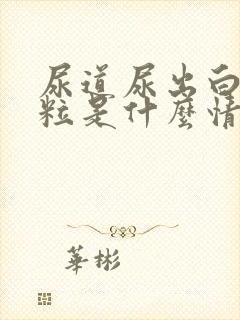 尿道尿出白
粒是什麼情
華彬